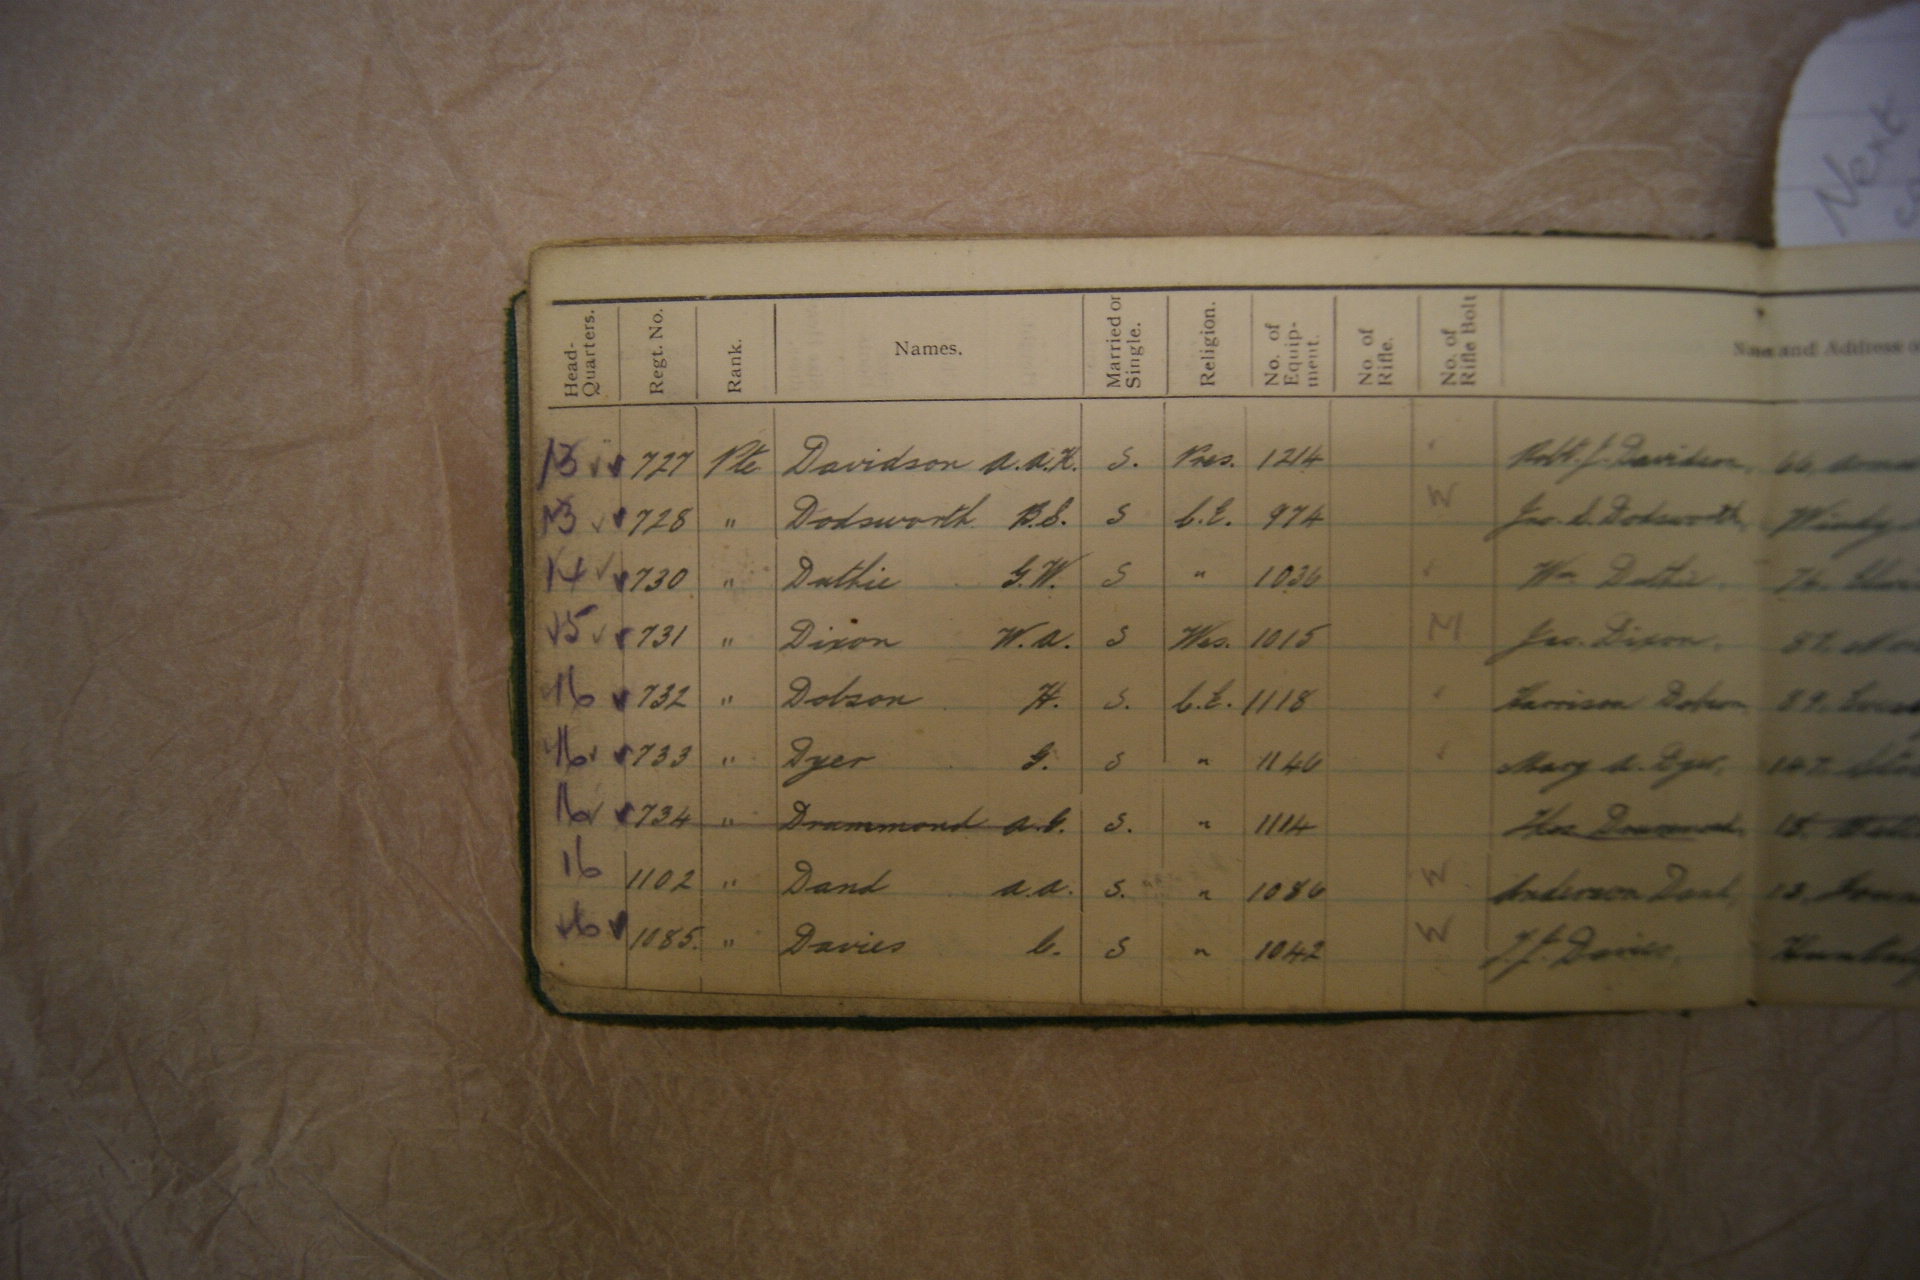 Next
Head-Quarters. Regt. No. Rank. Names. Married or Single. Religion. No. of Equip-ment. No. of Rifle. No. of Rifle Bolt Name and Address o
13 727 Pte Davidson A.A.K. S. Pres. 1214 Robt. J. Davidson, 66,
13 728 " Dodsworth B.S. S C.E. 974 Jno. S. Dodsworth,
14 730 " Duthie G.W. S " 1036 Wm Duthie, 76,
15 731 " Dixon W.A. S Wes. 1015 M Jas. Dixon,
16 732 " Dobson H. S. C.E. 1118 Harrison Dobson 89,
16 733 " Dyer G. S " 1146 Mary A. Dyer, 147,
16 734 " Drummond A.G. S. " 1114 Drummond, 15,
16 1102 " Dand A.A. S. " 1086 Anderson Dand, 13,
16 1085. " Davies C. S " 1042 Davies,